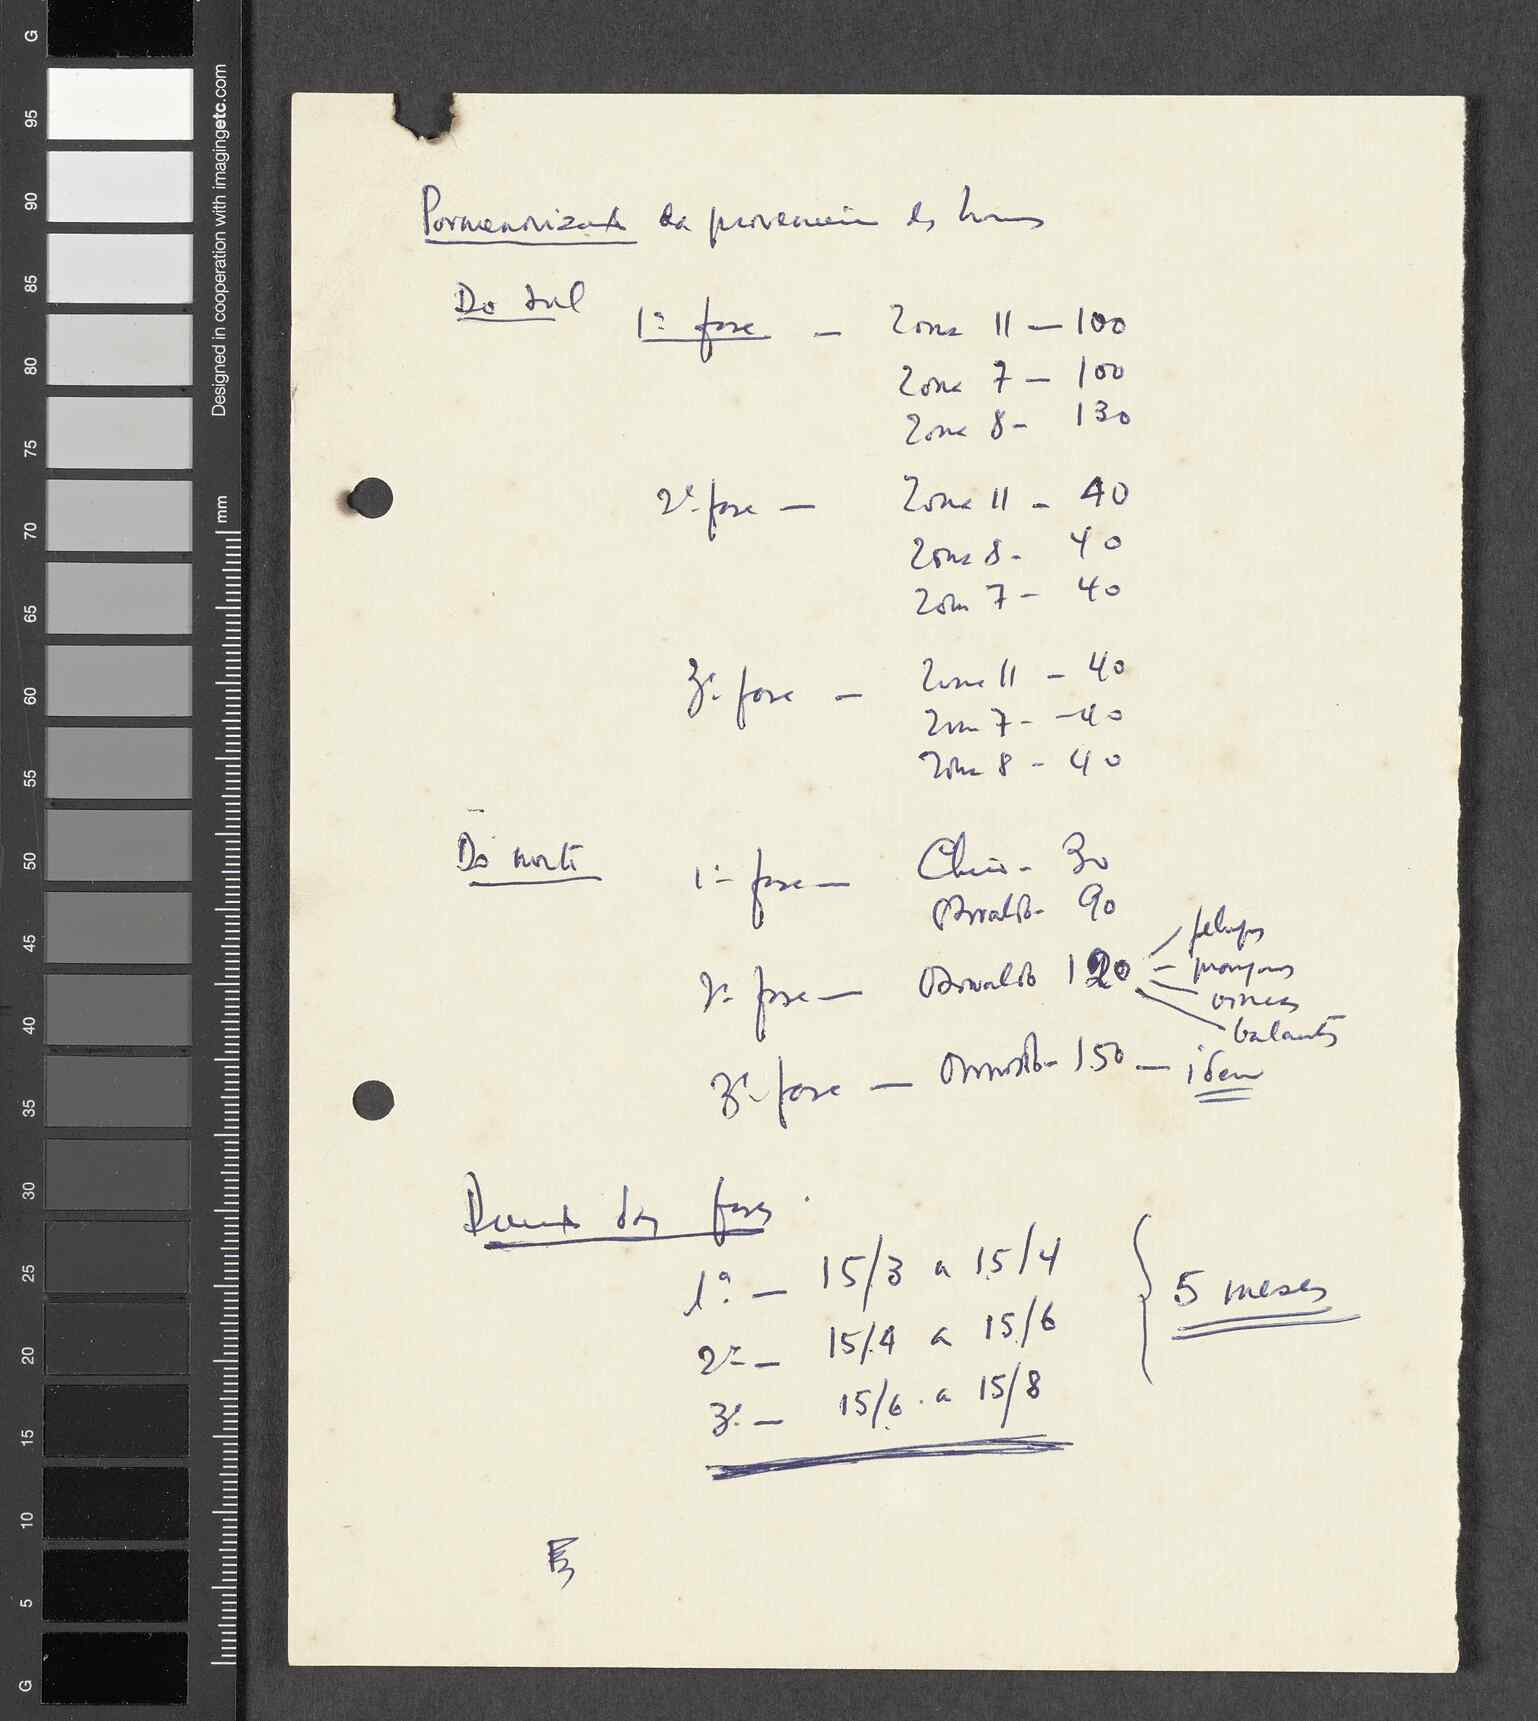 G
95
90
85
80
75
70
65
60
55
50
45
40
35
30
25
20
15
10
5
G
Designed in cooperation with imagingetc.com
mm
da
Do Sul
1ª fase — Zona 11 — 100
Zona 7 — 100
Zona 8 - 130
2ª fase — Zona 11 - 40
Zona 8 - 40
Zona 7 - 40
3ª fase — Zona 11 - 40
Zona 7 - 40
Zona 8 - 40
Do norte
1ª fase — 30
Osvaldo - 90
2ª fase — Osvaldo 120
felupes
balantes
3ª fase — Osvaldo - 150 — idem
das fases
1ª — 15/3 a 15/4
2ª — 15/4 a 15/6
3ª — 15/6 a 15/8
5 meses